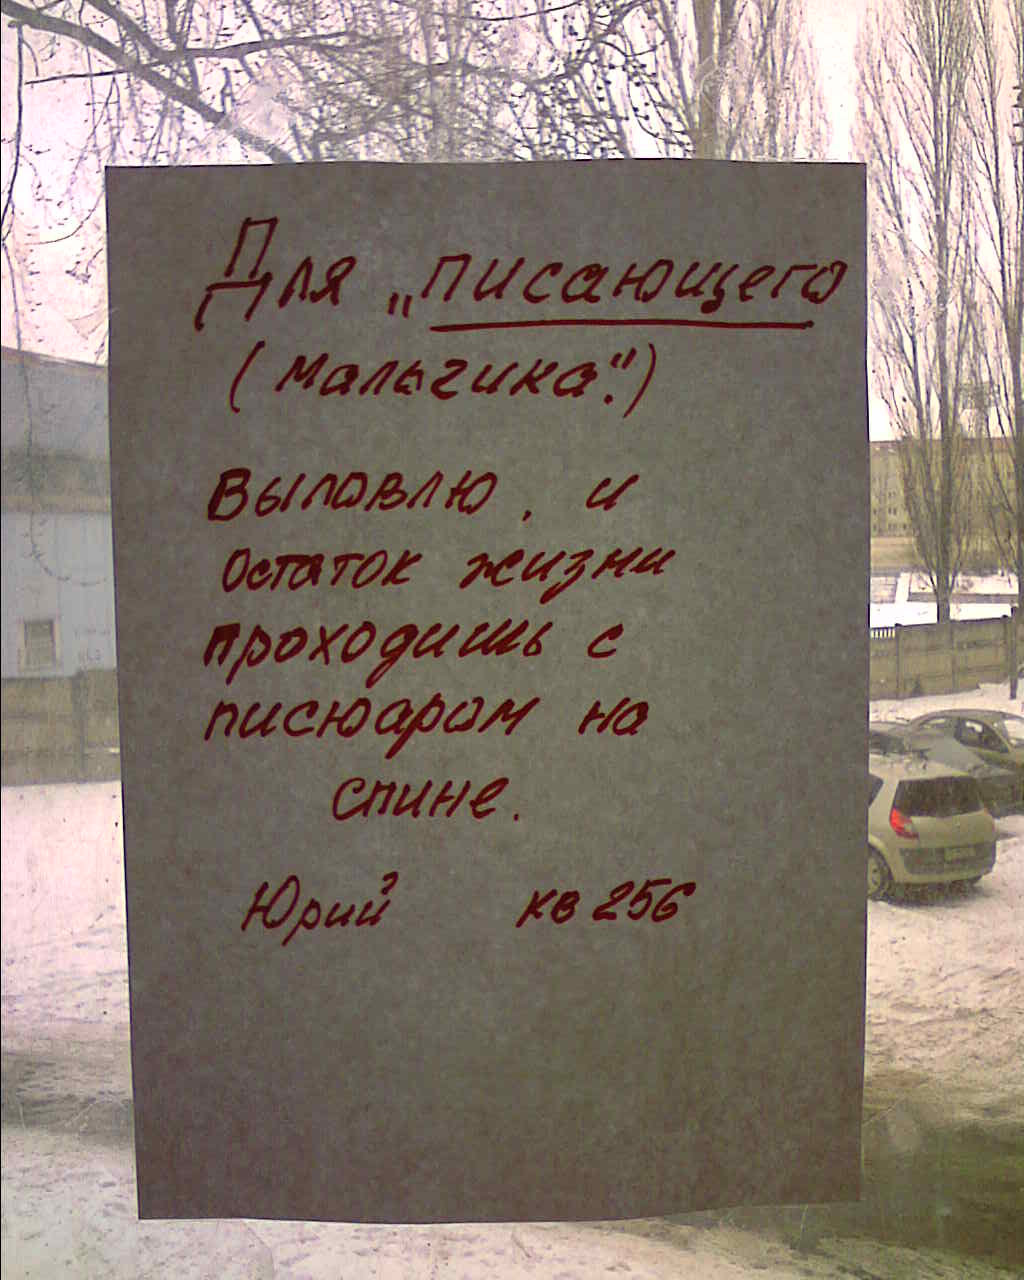 Для „писающего
(мальчика“.)
Выловлю, и
остаток жизни
проходишь с
писюаром на
спине.
Юрий кв 256